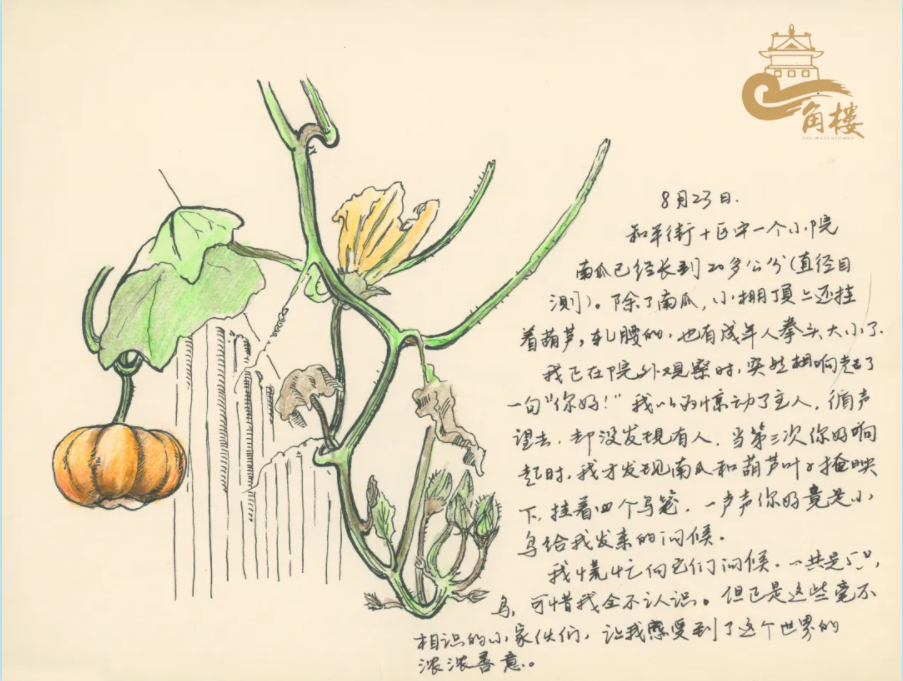 角楼
8月23日.
和平街十区中一个小院
南瓜已经长到20多公分(直径目
测)。除了南瓜,小棚顶上还挂
着葫芦,轧腰的.也有成年人拳头大小了.
我正在院外观察时,突然想响起了
一句“你好!”我以为惊动了主人,循声
望去,却没发现有人,当第三次你好响
起时,我才发现南瓜和葫芦叶子掩映
下,挂着四个鸟笼.一声声你好竟是小
鸟给我发来的问候.
我慌忙向它们问候.一共是5只,
鸟,可惜我全不认识。但正是这些毫不
相识的小家伙们,让我感受到了这个世界的
浓浓善意。